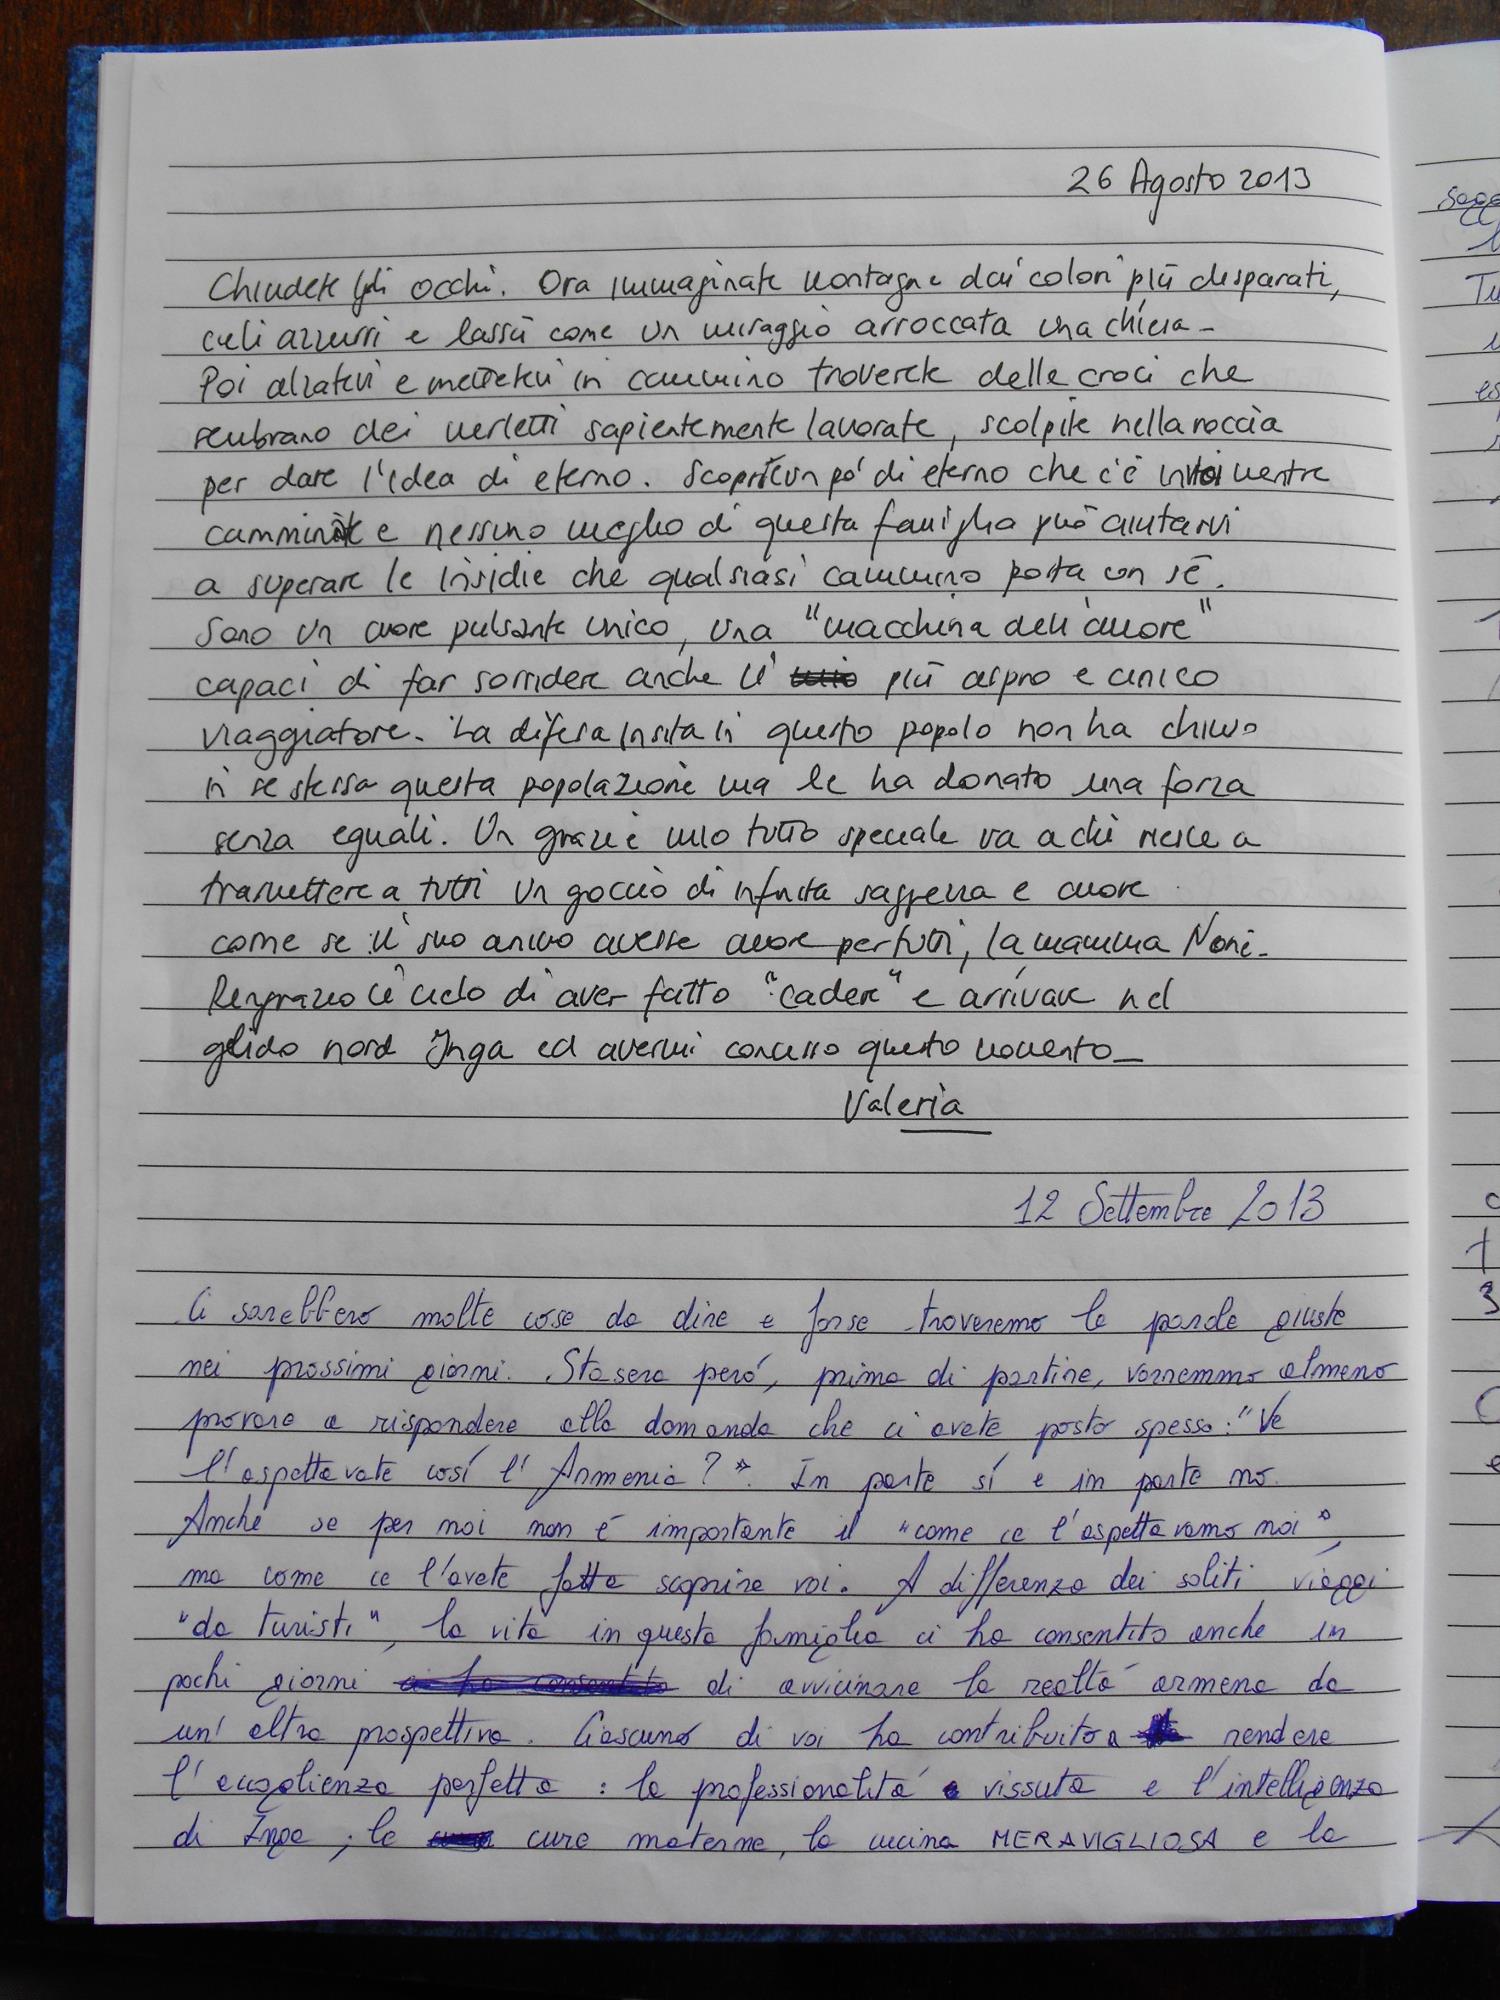 26 Agosto 2013
Chiudete gli occhi. Ora immaginate montagne dai colori più disparati,
cieli azzurri e lassù come un miraggio arroccata una chiesa -
Poi alzatevi e mettetevi in cammino troverete delle croci che
sembrano dei merletti sapientemente lavorate, scolpite nella roccia
per dare l'idea di eterno. Scoprite un po' di eterno che c'è in voi mentre
camminate e nessuno meglio di questa famiglia può aiutarvi
a superare le insidie che qualsiasi cammino porta con sé.
Sono un cuore pulsante unico, una "macchina dell'amore"
capaci di far sorridere anche il più aspro e cinico
viaggiatore. La difesa insita in questo popolo non ha chiuso
in se stessa questa popolazione ma le ha donato una forza
senza eguali. Un grazie mio tutto speciale va a chi riesce a
trasmettere a tutti un goccio di infinita saggezza e cuore
come se il suo animo avesse cuore per tutti, la mamma Noné.
Ringrazio il cielo di aver fatto "cadere" e arrivare nel
gelido nord Inga ed avermi concesso questo momento -
Valeria
12 Settembre 2013
Ci sarebbero molte cose da dire e forse troveremo le parole giuste
nei prossimi giorni. Stasera però, prima di partire, vorremmo almeno
provare a rispondere alla domanda che ci avete posto spesso: "Ve
l'aspettavate così l'Armenia?". In parte sí e in parte no.
Anche se per noi non é importante il "come ce l'aspettavamo noi",
ma come ce l'avete fatta scoprire voi. A differenza dei soliti viaggi
"da turisti", la vita in questa famiglia ci ha consentito anche in
pochi giorni ci ha consentito di avvicinare la realtà armena da
un'altra prospettiva. Ciascuno di voi ha contribuito a rendere
l'accoglienza perfetta: la professionalità vissuta e l'intelligenza
di Inga; le cure materne, la cucina MERAVIGLIOSA e la